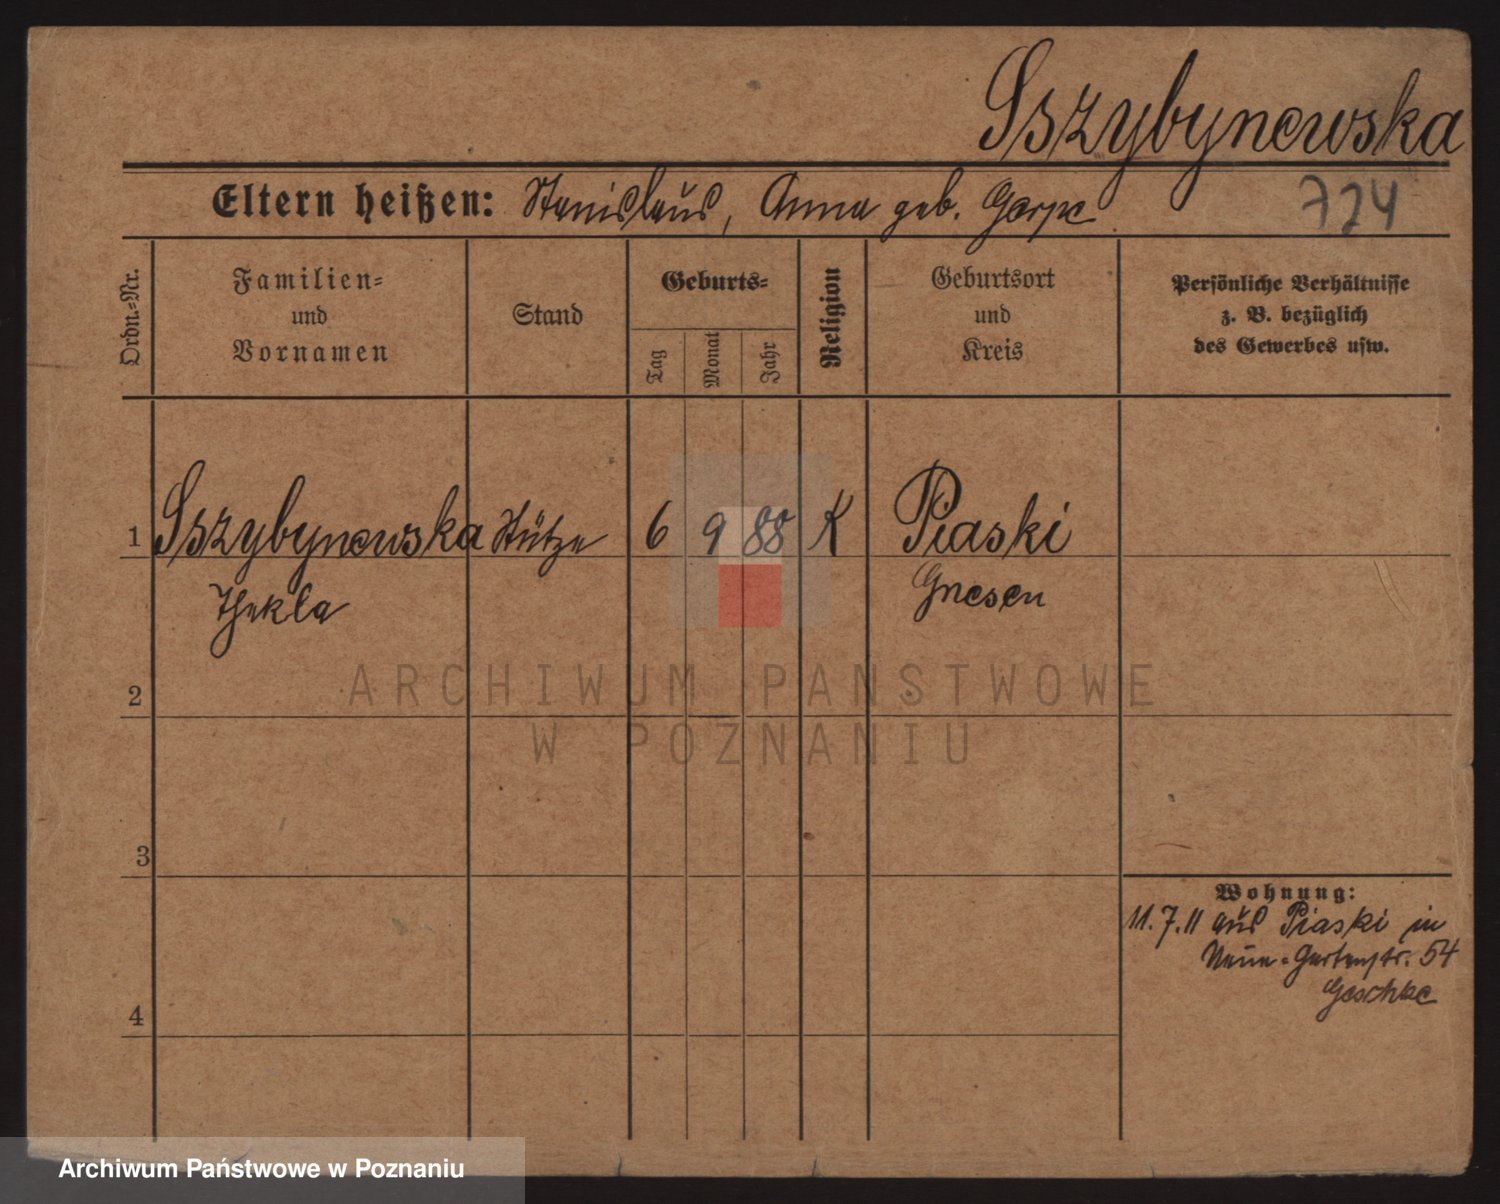 Sszybynewska
Eltern heißen: Stanislaus, Anna geb.
724
Ordn.=Nr.
Familien=
und
Vornamen
Stand
Geburts=
Tag
Monat
Jahr
Religion
Geburtsort
und
Kreis
Persönliche Verhältnisse
z. B. bezüglich
des Gewerbes usw.
1 Sszybynewska Stütze 6 9 88 K Piaski
Thekla Gnesen
2
3
4
Wohnung:
11.7.11 aus Piaski in
Neue=Gartenstr. 54
Geschke
ARCHIWUM PAŃSTWOWE
W POZNANIU
Archiwum Państwowe w Poznaniu